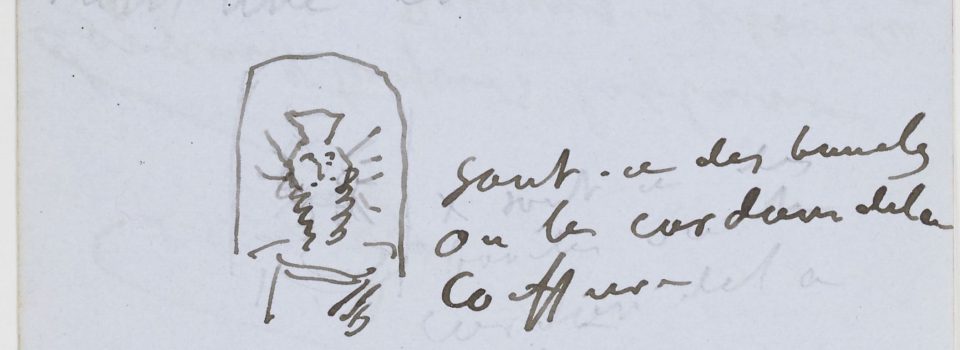 sont-ce des boucles
ou les cordons de la
coiffure